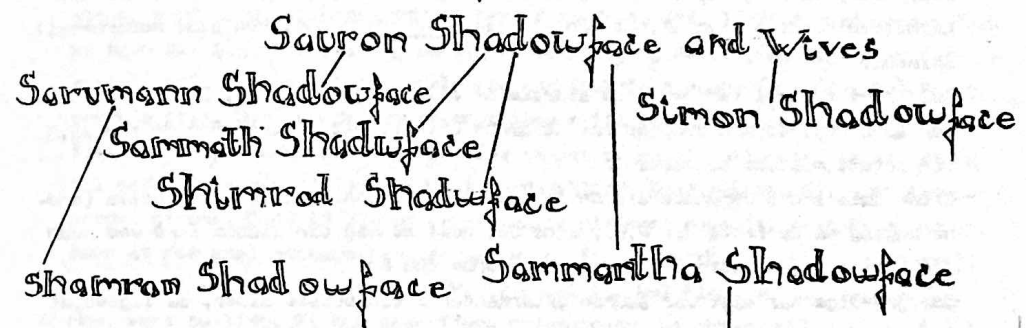 Sauron Shadowface and Wives
Sarumann Shadowface
Simon Shadowface
Sammath Shadwface
Shimrod Shadwface
Shamran Shadowface
Sammantha Shadowface